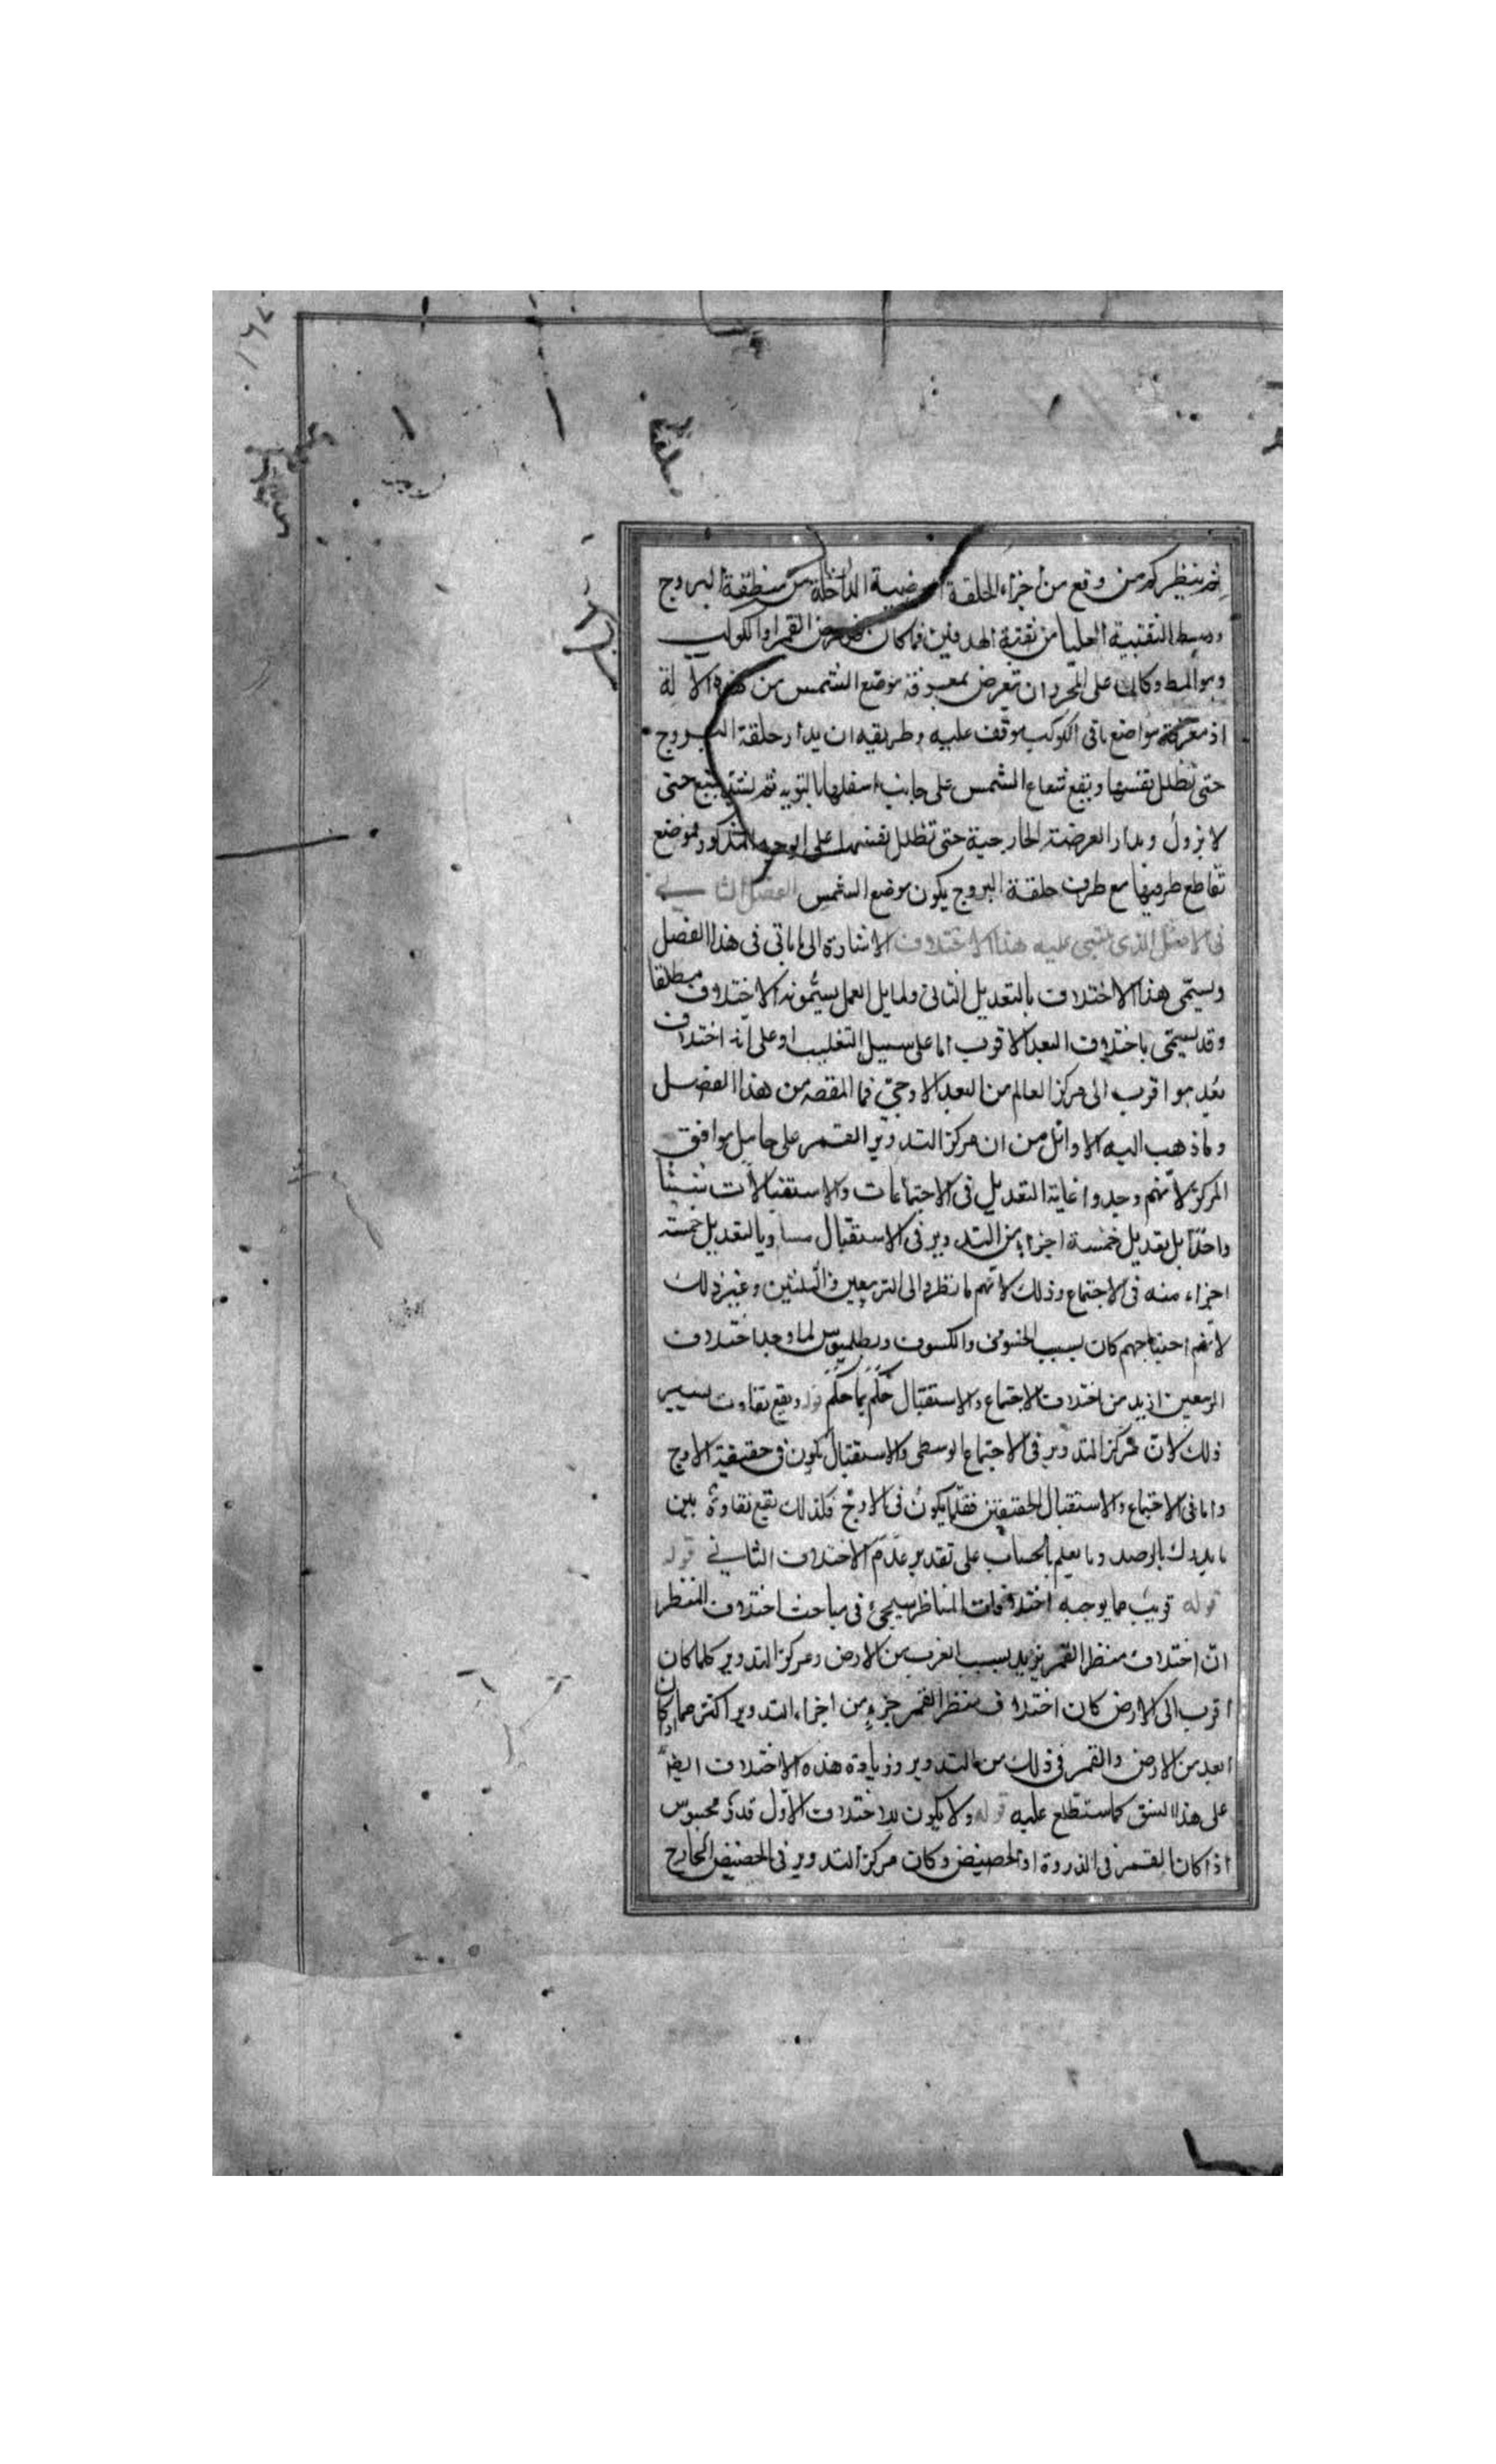 ثم ينظر كم من وقع من اجزاء الحلقة العرضية الداخلة من منطقة البروج
وسط الثقبة العليا من ثقبة الهدفين فما كان فهو عرض القمر او الكوكب
وهو المط وكان على المحرر ان يتعرض لمعرفة موضع الشمس من هذه الالة
اذ معرفة مواضع باقى الكوكب موقف عليه وطريقه ان يدار حلقة البروج
حتى تظلل نفسها ويقع شعاع الشمس على جانب اسفلها بالتوبه ثم حتى
لا يزول ويدار العرضية الخارجية حتى تظلل نفسها على الوجه المذكور فموضع
تقاطع طرفيها مع طرف حلقة البروج يكون موضع الشمس الفصل الثانى
فى الاصل الذى يبتنى عليه هذا الاختلاف الاشارة الى ما ياتى فى هذا الفصل
ويسمى هذا الاختلاف بالتعديل الثانى واهل العمل يسمونه الاختلاف مطلقا
وقد يسمى باختلاف البعد الاقرب اما على سبيل التغليب او على انه اختلاف
بعد هو اقرب الى مركز العالم من البعد الاوجى فما المقصد من هذا الفصل
وما ذهب اليه الاوائل من ان مركز التدوير القمر على حامل موافق
المركز لانهم وجدوا غاية التعديل فى الاجتماعات والاستقبالات شيئا
واحدا بل تعديل خمسة اجزاء من التدوير فى الاستقبال مساويا لتعديل خمسة
اجزاء منه فى الاجتماع وذلك لانهم ما نظروا الى التربيعين والتثليثين وغير ذلك
لانهم احتياجهم كان بسبب الخسوف والكسوف وبطلميوس لما وجد اختلاف
التربيعين ازيد من اختلاف الاجتماع والاستقبال حكم بما حكم قوله ويقع تفاوت يسير
ذلك لان مركز التدوير فى الاجتماع الوسطى والاستقبال يكون فى حقيقة الاوج
واما فى الاجتماع والاستقبال الحقيقيين فقلما يكون فى الاوج فلذلك يقع تفاوت بين
ما يدرك بالرصد وما يعلم بالحساب على تقدير عدم الاختلاف الثانى قوله
قوله قريب مما يوجبه اختلافات المناظر سيجئ فى مباحث اختلاف المنظر
ان اختلاف منظر القمر يزيد بسبب القرب من الارض ومركز التدوير كلما كان
اقرب الى الارض كان اختلاف منظر القمر جزء من اجزاء التدوير اكثر مما اذا كان
ابعد من الارض والقمر فى ذلك من التدوير وزيادة هذه الاختلاف ايضا
على هذا النسق كما ستطلع عليه قوله ولا يكون للاختلاف الاول قدر محسوس
اذا كان القمر فى الذروة او الحضيض وكان مركز التدوير فى الحضيض الخارج